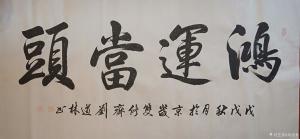 鴻運當頭
戊戌秋月於京雙齋劉道林书